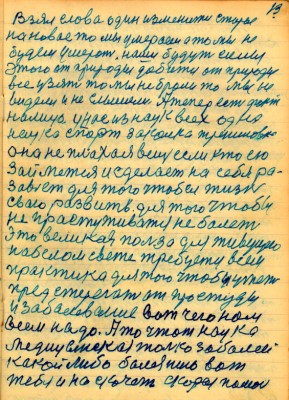 13
Взял слова один изменить старое
на новое то мы умерали а то мы не
будем умерат, нами будут силы
этого от природы добыты от природы
все узят то мы не брали то мы не
видели и не слышели. А теперь ест факт
на лицо у нас из наук всех одна
наука спорт закалка тренировка
она не плахая вещ если кто ею
займется и сделает на себя ра-
завьет для того чтобы жизн
свою развить, для того чтобы
не простуживатся не болет
Это великая полза для живущего
на белом свете требуется всем
практика для того чтобы умет
предстерегат от простуды
и забалевание вот чего нам
всем надо. А то что то наука
медицинская толко забалей
какой либо балезню вот
тебя и на скочат скорая помощ